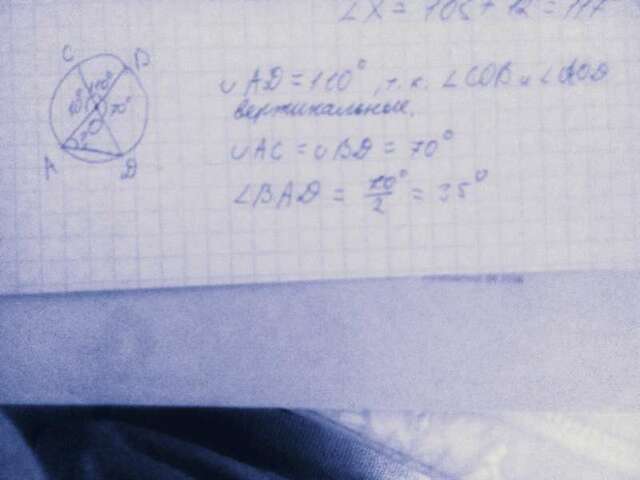 ∠X = 105 + 12 = 117
C
B
110°
70°
70°
O
?
A
D
∪AD = 110°, т.к. ∠COB и ∠AOD
вертикальные.
∪AC = ∪BD = 70°
∠BAD = 70°/2 = 35°